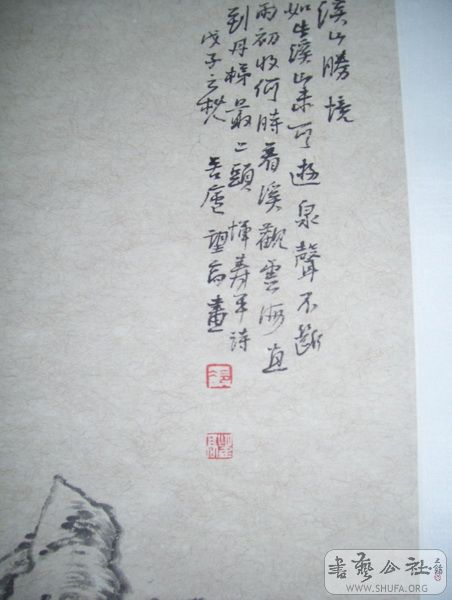 溪山勝境
如坐溪山未可遊泉聲不斷
雨初收何時看溪觀雲海直
到丹梯最上頭惲壽平詩
戊子之秋 望高畫
書藝公社
WWW.SHUFA.ORG